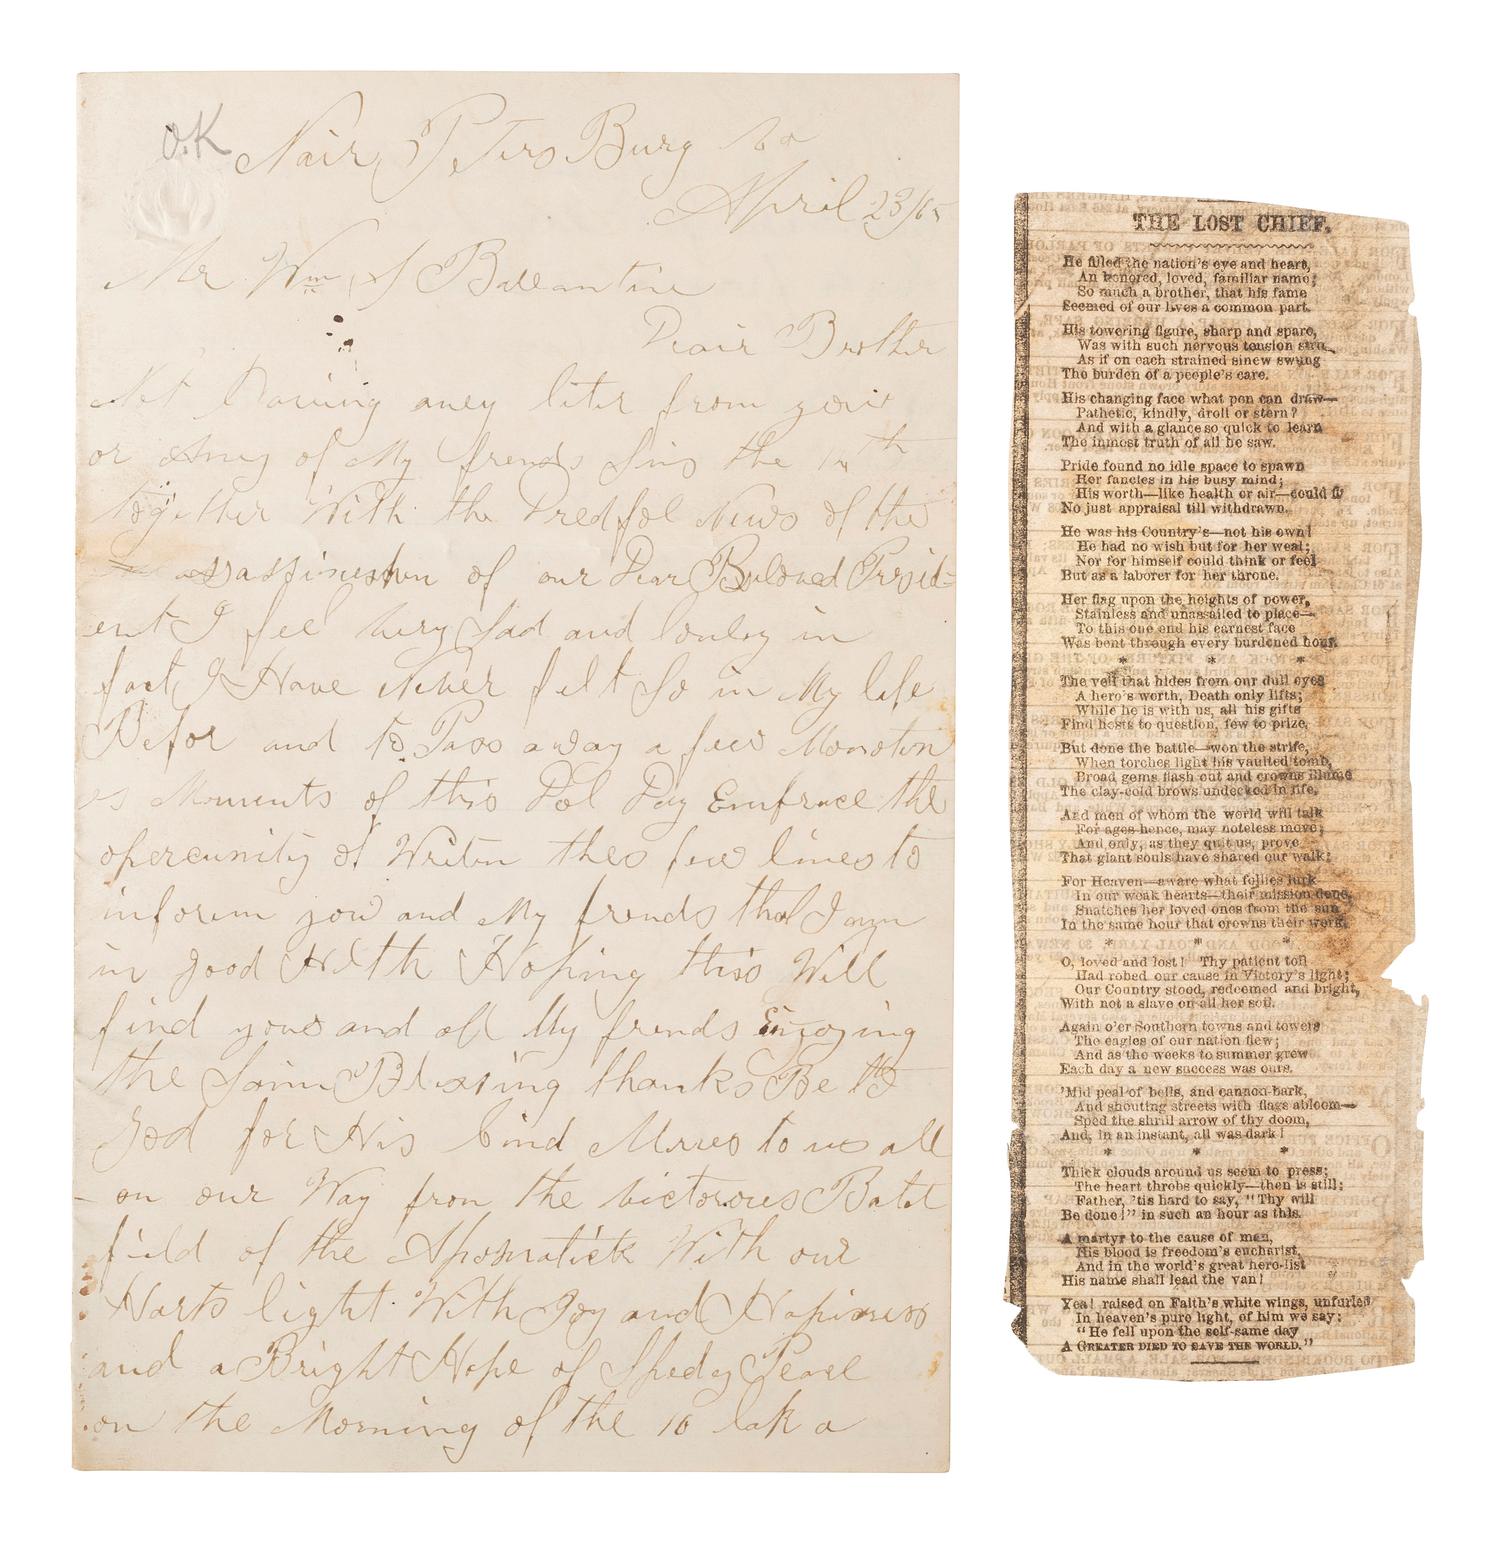 O.K
Nair Peters Burg Va
April 23/65
Mr Wm S Ballantine
Deair Brother
Not Having aney leter from you
or aney of My frends sins the
together With the Dredfol News of the
assassineshon of our Dear Beloved Presid-
ent I feel very Sad and lonley in
fact I Have Never felt So in My life
Befor and to Pass away a few Monoton
os Moments of this Dol Day Embrace the
opercunity of Writen thes few lines to
inforem you and My frends that I am
in good Helth Hoping this Will
find you and all My frends Enjoying
the Saim Blessing thanks Be to
God for His kind Mrres to us all
on our Way from the victorous Batel
field of the Apomatick With our
Harts light With Joy and Hapiness
and a Bright Hope of Spedy Peace
on the Morning of the 16 lak a
THE LOST CHIEF.
He filled the nation's eye and heart,
An honored, loved, familiar name;
So much a brother, that his fame
Seemed of our lives a common part.
His towering figure, sharp and spare,
Was with such nervous tension strung,
As if on each strained sinew swung
The burden of a people's care.
His changing face what pen can draw—
Pathetic, kindly, droll or stern?
And with a glance so quick to learn
The inmost truth of all he saw.
Pride found no idle space to spawn
Her fancies in his busy mind;
His worth—like health or air—could find
No just appraisal till withdrawn.
He was his Country's—not his own!
He had no wish but for her weal;
Nor for himself could think or feel
But as a laborer for her throne.
Her flag upon the heights of power,
Stainless and unassailed to place—
To this one end his earnest face
Was bent through every burdened hour.
* * *
The veil that hides from our dull eyes
A hero's worth, Death only lifts;
While he is with us, all his gifts
Find hosts to question, few to prize.
But done the battle—won the strife,
When torches light his vaulted tomb,
Broad gems flash out and crowns illume
The clay-cold brows undecked in life.
And men of whom the world will talk
For ages hence, may noteless move;
And only, as they quit us, prove
That giant souls have shared our walk;
For Heaven—aware what follies lurk
In our weak hearts—their mission done,
Snatches her loved ones from the sun
In the same hour that crowns their work.
* * *
O, loved and lost! Thy patient toil
Had robed our cause in Victory's light;
Our Country stood, redeemed and bright,
With not a slave on all her soil.
Again o'er Southern towns and towers
The eagles of our nation flew;
And as the weeks to summer grew
Each day a new success was ours.
'Mid peal of bells, and cannon-bark,
And shouting streets with flags abloom—
Sped the shrill arrow of thy doom,
And, in an instant, all was dark!
* * *
Thick clouds around us seem to press;
The heart throbs quickly—then is still;
Father, 'tis hard to say, "Thy will
Be done!" in such an hour as this.
A martyr to the cause of man,
His blood is freedom's eucharist,
And in the world's great hero-list
His name shall lead the van!
Yea! raised on Faith's white wings, unfurled
In heaven's pure light, of him we say:
"He fell upon the self-same day
A GREATER DIED TO SAVE THE WORLD."